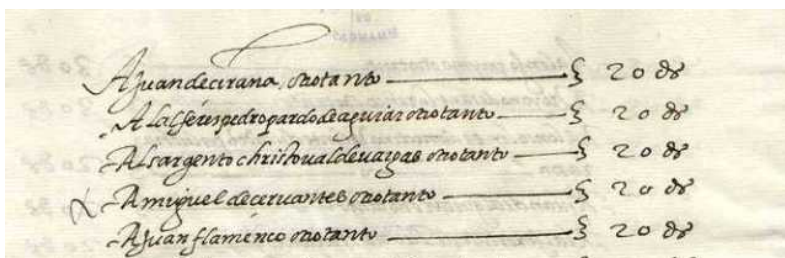 A juan de cirana, otro tanto 20 ds
Al alferes pedro pardo de aguiar otro tanto 20 ds
Al sargento christoval de vargas otro tanto 20 ds
A miguel de cervantes otro tanto 20 ds
A juan flamenco otro tanto 20 ds